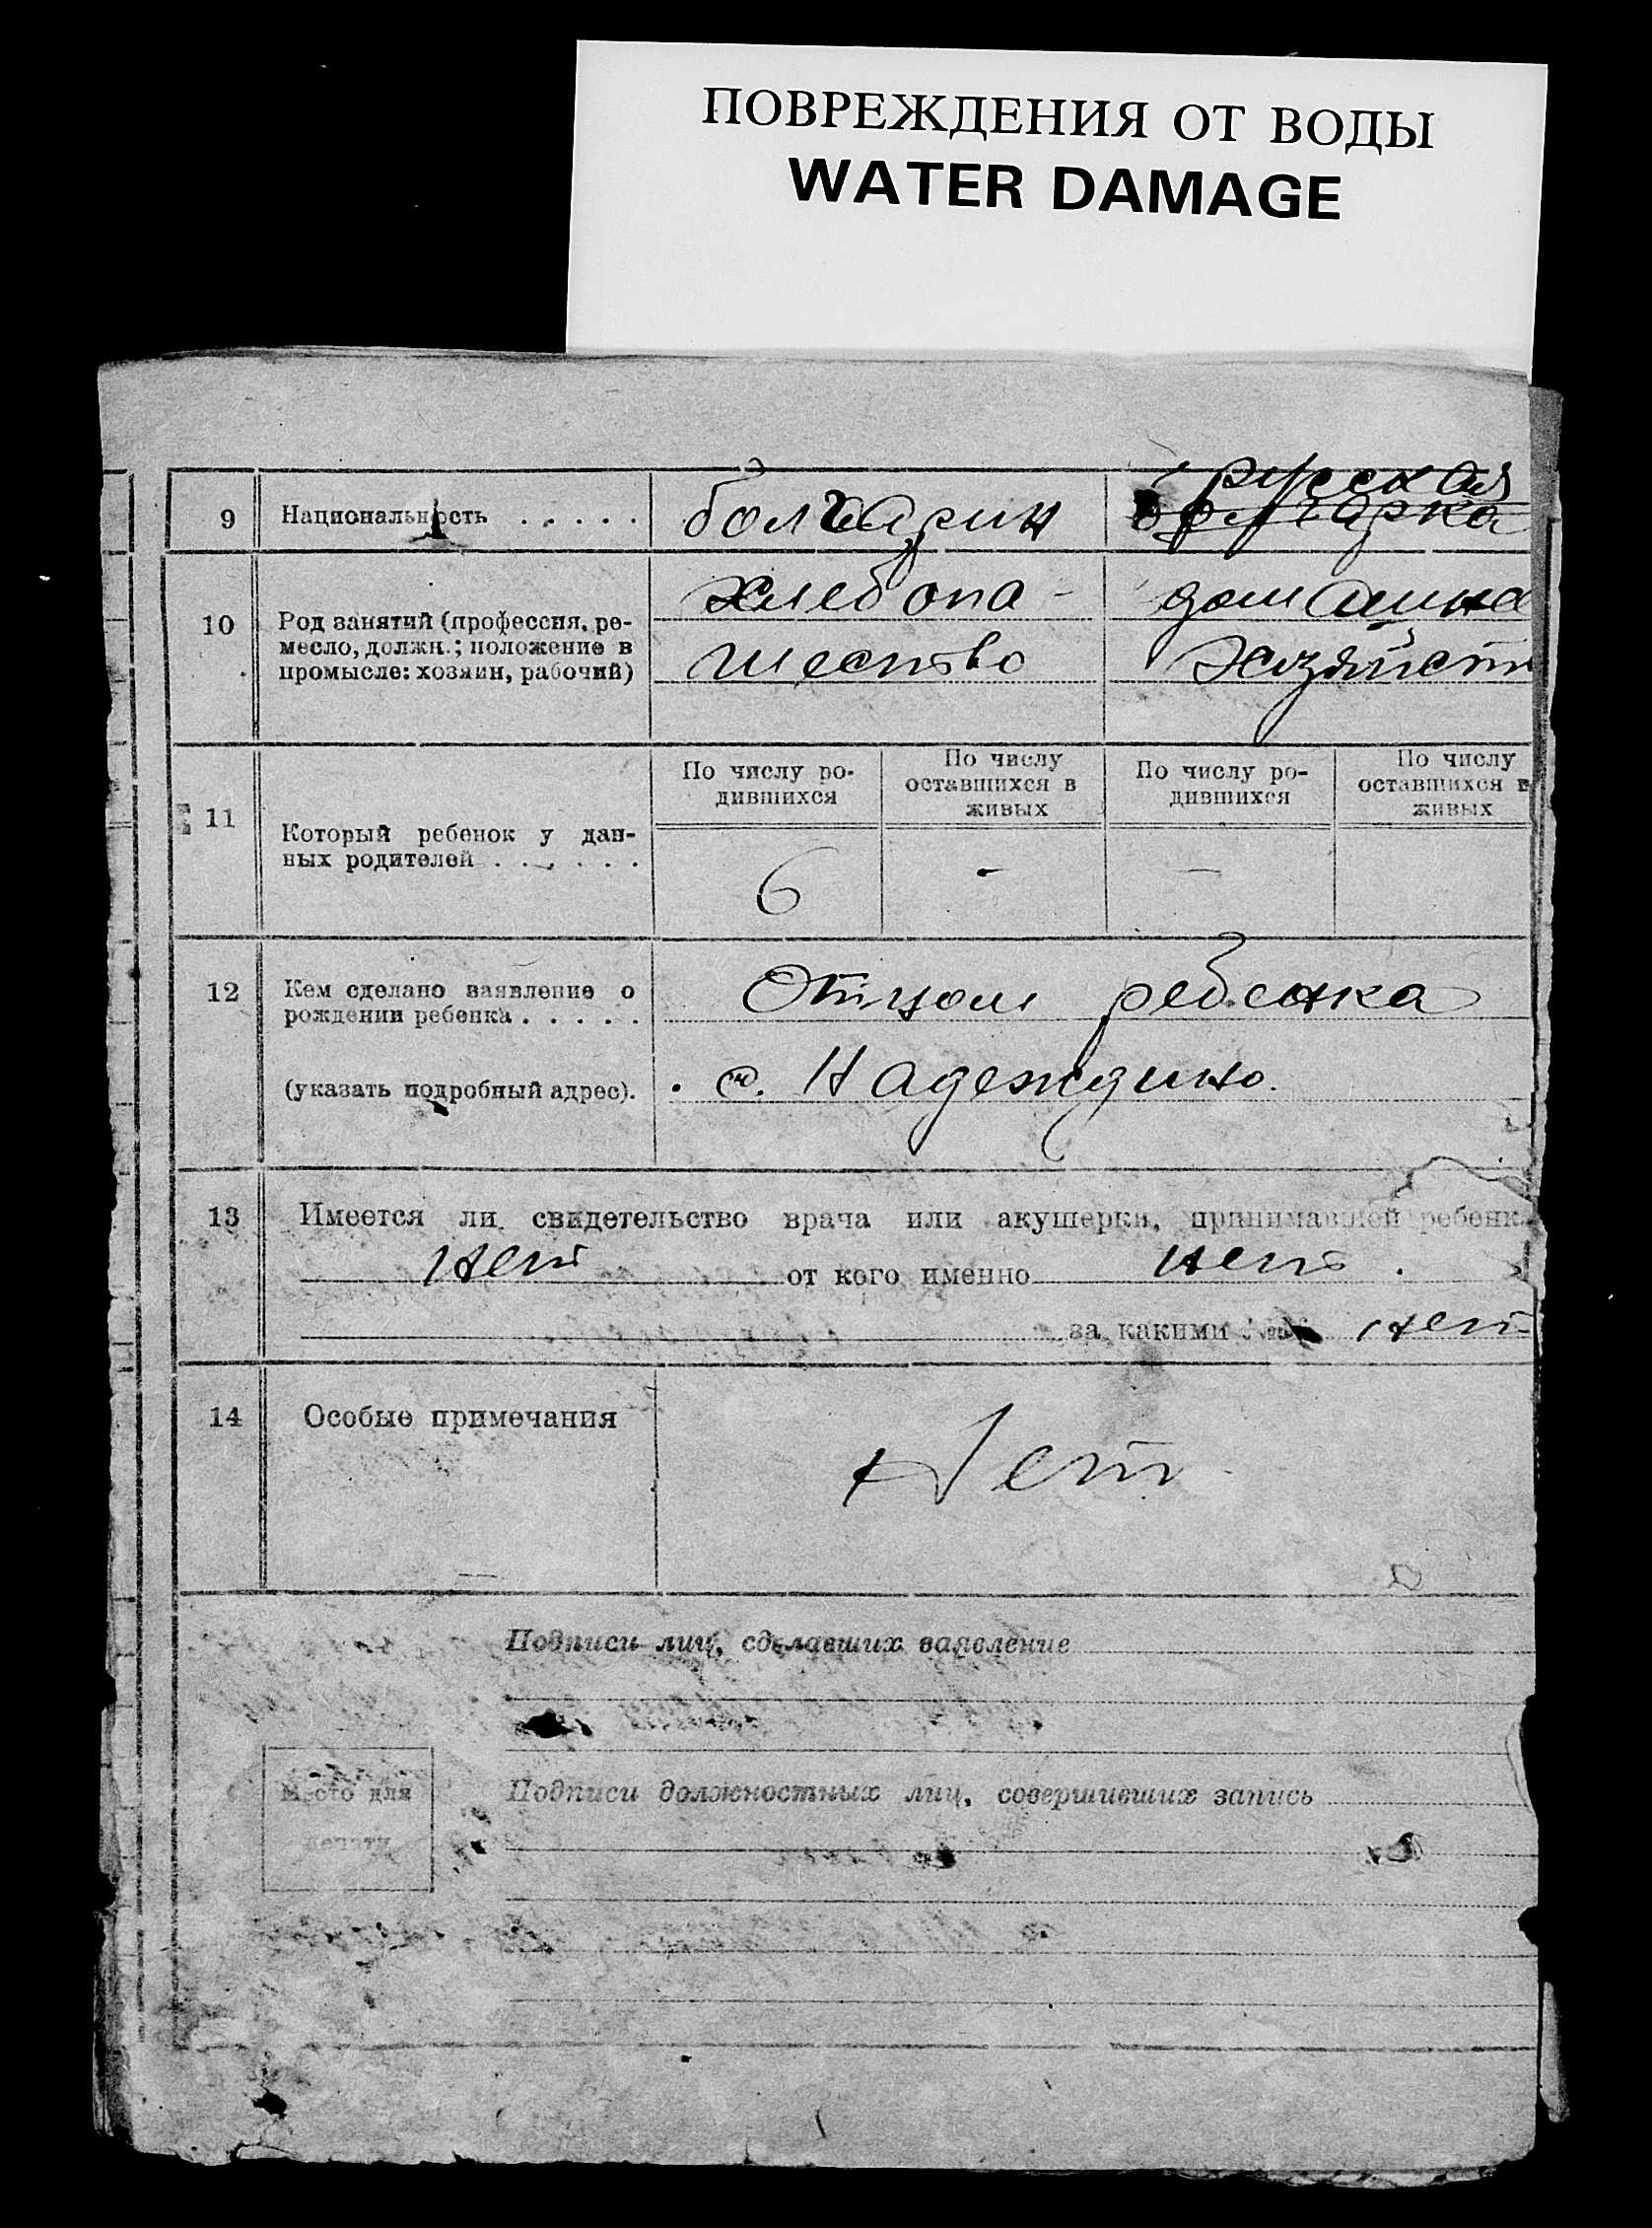 ПОВРЕЖДЕНИЯ ОТ ВОДЫ
WATER DAMAGE
русская
9 Национальность . . . . . болгарин болгарка
10 Род занятий (профессия, ре-
месло, должн.; положение в
промысле: хозяин, рабочий)
хлебопа-
шество
домашне
хозяйств
11 Который ребенок у дан-
ных родителей . . . . . .
По числу ро-
дившихся
По числу
оставшихся в
живых
По числу ро-
дившихся
По числу
оставшихся в
живых
6 - -
12 Кем сделано заявление о
рождении ребенка . . . . .
Отцом ребенка
(указать подробный адрес). с. Надеждино.
13 Имеется ли свидетельство врача или акушерки, принимавшей ребенк
нет от кого именно нет.
за какими №№ нет
14 Особые примечания Нет
Подписи лиц, сделавших заявление
Место для
печати
Подписи должностных лиц, совершивших запись